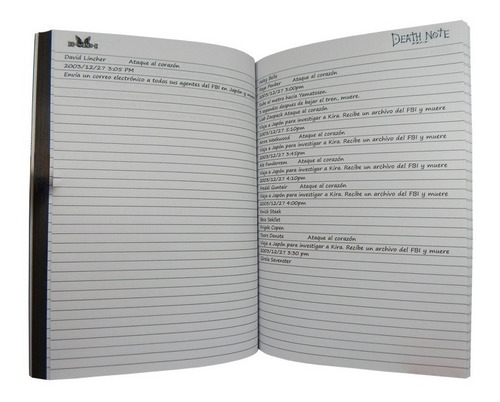 David Lincher Ataque al corazón
2003/12/27 3:05 PM
Envía un correo electrónico a todos sus agentes del FBI en Japón y
DEATH NOTE
Ataque al corazón
2003/12/27 3:00pm
Sube al metro hacia Yamatosen.
segundos despues de bajar el tren, muere.
Ataque al corazón
Viaja a Japón para investigar a Kira. Recibe un archivo del FBI y muere
2003/12/27 5:10pm
Ataque al corazón
Viaja a Japón para investigar a Kira. Recibe un archivo del FBI y muere
2003/12/27 3:45pm
Ataque al corazón
Viaja a Japón para investigar a Kira. Recibe un archivo del FBI y muere
2003/12/27 4:10pm
Ataque al corazón
Viaja a Japón para investigar a Kira. Recibe un archivo del FBI y muere
2003/12/27 4:00pm
Knick Staek
Bess Sekllet
Frigde Copen
Tors Denote Ataque al corazón
Viaja a Japón para investigar a Kira. Recibe un archivo del FBI y muere
2003/12/27 3:30 pm
Girela Sevenster